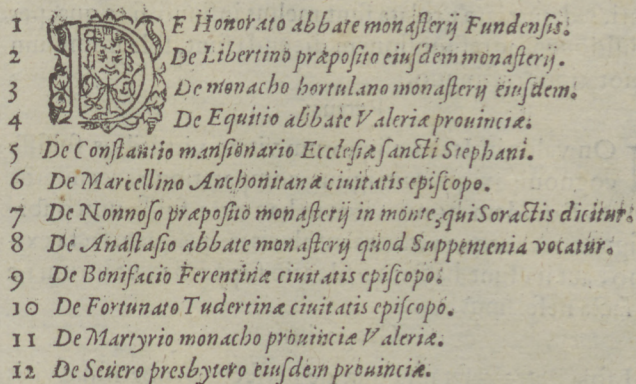 1 DE Honorato abbate monasterij Fundensis.
2 De Libertino præposito eiusdem monasterij.
3 De monacho hortulano monasterij eiusdem.
4 De Equitio abbate Valeriæ prouinciæ.
5 De Constantio mansionario Ecclesiæ sancti Stephani.
6 De Marcellino Anchonitanæ ciuitatis episcopo.
7 De Nonnoso præposito monasterij in monte, qui Soractis dicitur.
8 De Anastasio abbate monasterij quod Suppentenia vocatur.
9 De Bonifacio Ferentinæ ciuitatis episcopo.
10 De Fortunato Tudertinæ ciuitatis episcopo.
11 De Martyrio monacho prouinciæ Valeriæ.
12 De Seuero presbytero eiusdem prouinciæ.